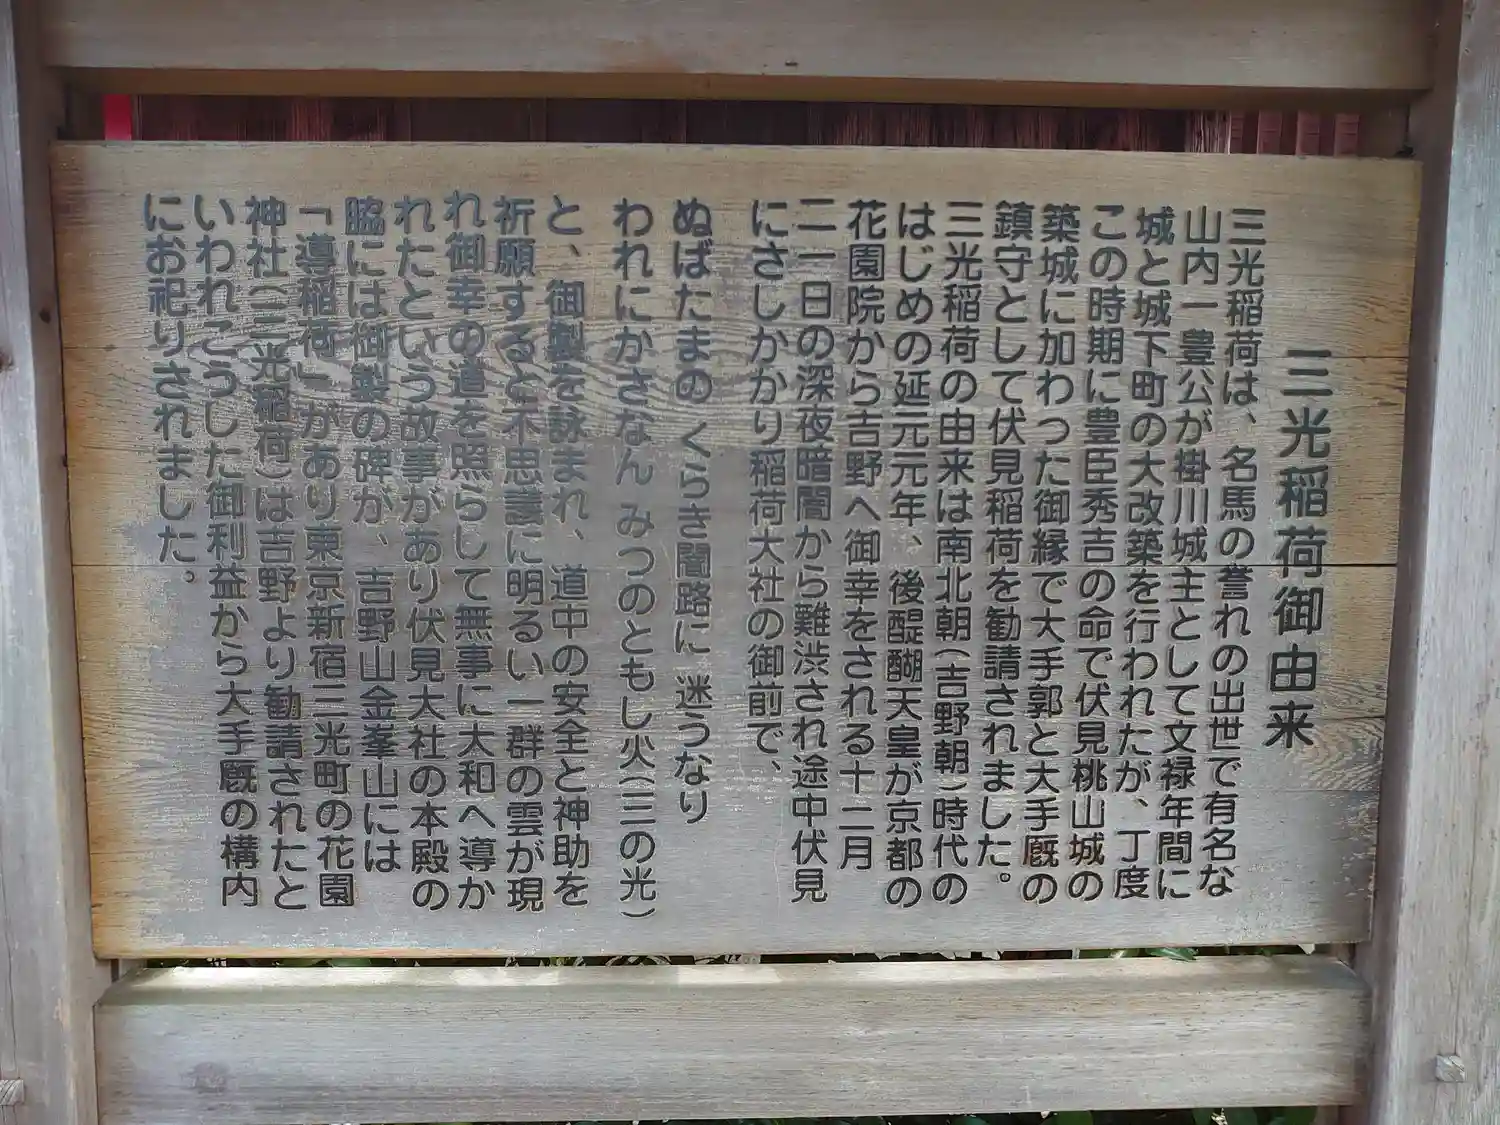 三光稲荷御由来
三光稲荷は、名馬の誉れの出世で有名な
山内一豊公が掛川城主として文禄年間に
城と城下町の大改築を行われたが、丁度
この時期に豊臣秀吉の命で伏見桃山城の
築城に加わった御縁で大手郭と大手厩の
鎮守として伏見稲荷を勧請されました。
三光稲荷の由来は南北朝（吉野朝）時代の
はじめの延元元年、後醍醐天皇が京都の
花園院から吉野へ御幸をされる十二月
二一日の深夜暗闇から難渋され途中伏見
にさしかかり稲荷大社の御前で、
ぬばたまの くらき闇路に 迷うなり
われにかさなん みつのともし火（三の光）
と、御製を詠まれ、道中の安全と神助を
祈願すると不思議に明るい一群の雲が現
れ御幸の道を照らして無事に大和へ導か
れたという故事があり伏見大社の本殿の
脇には御製の碑が、吉野山金峯山には
「導稲荷」があり東京新宿三光町の花園
神社（三光稲荷）は吉野より勧請されたと
いわれこうした御利益から大手厩の構内
にお祀りされました。